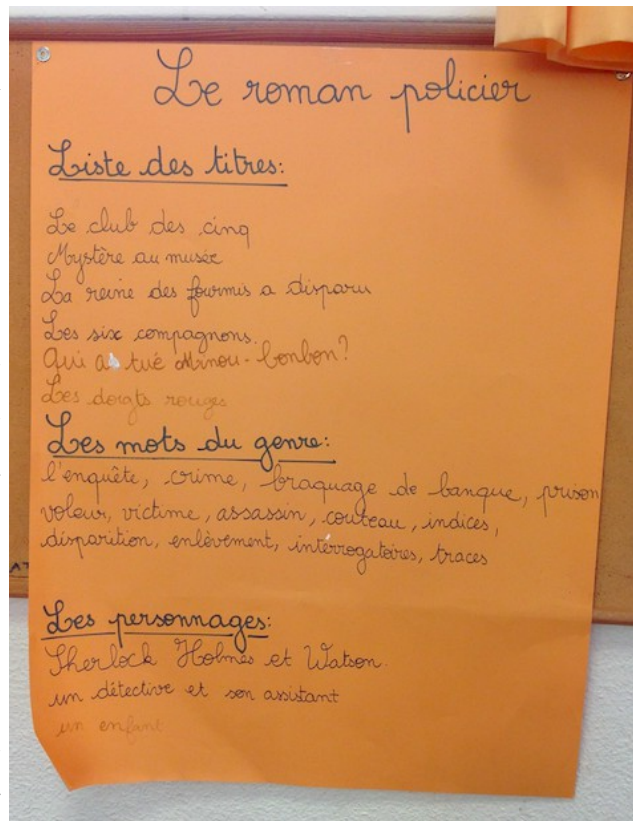 Le roman policier
Liste des titres:
Le club des cinq
Mystère au musée
La reine des fourmis a disparu
Les six compagnons.
Qui a tué Minou-bonbon?
Les doigts rouges
Les mots du genre:
l'enquête, crime, braquage de banque, prison
voleur, victime, assassin, couteau, indices,
disparition, enlèvement, interrogatoires, traces
Les personnages:
Sherlock Holmes et Watson.
un détective et son assistant
un enfant